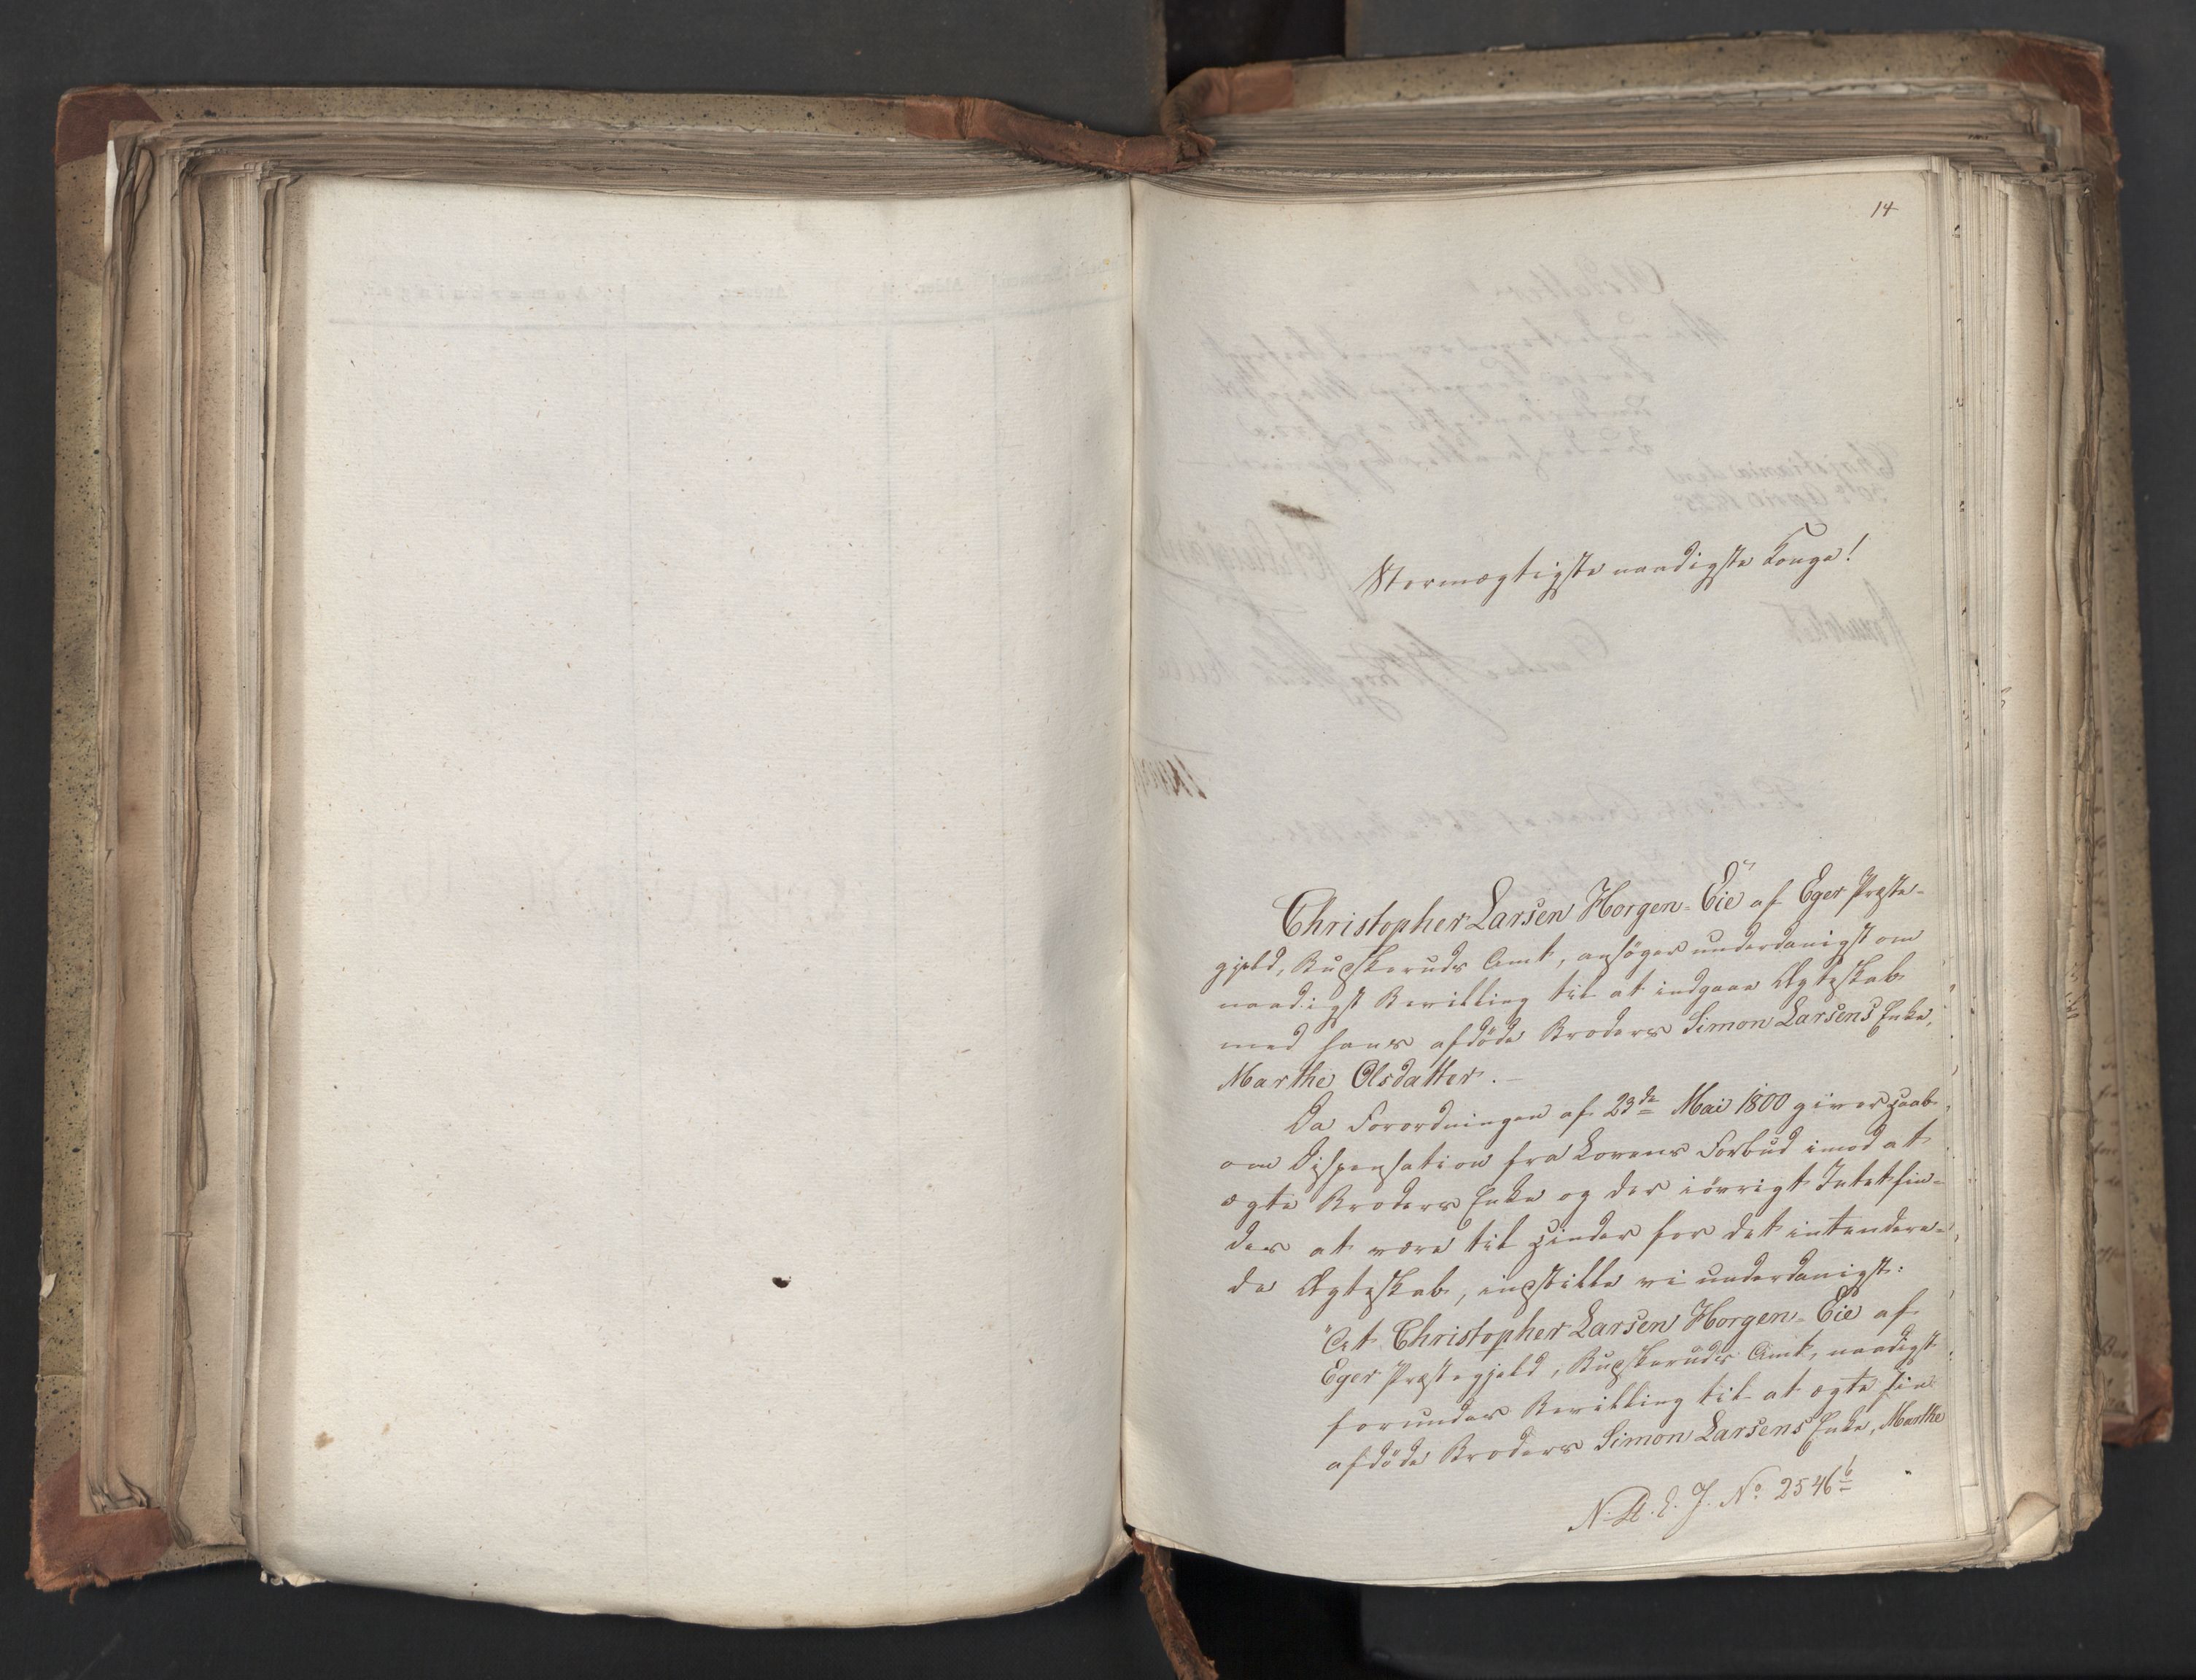 14
Stormægtigste naadigste Konge!
Christopher Larsen Horgen-Eie af Eger Præste-
gjeld, Buskeruds Amt, ansøger underdanigst om
naadigst Bevilling til at indgaae Ægteskab
med hans afdøde Broders Simon Larsens Enke,
Marthe Olsdatter.
Da Forordningen af 23de Mai 1800 giver Haab
om Dispensation fra Lovens Forbud imod at
ægte Broders Enke og der iøvrigt Intet fin-
des at være til Hinder for det intendere-
de Ægteskab, indstille vi underdanigst:
"At Christopher Larsen Horgen-Eie af
Eger Præstegjeld, Buskeruds Amt, naadigst
forundes Bevilling til at ægte sin
afdøde Broders Simon Larsens Enke, Marthe
No. 2546 b